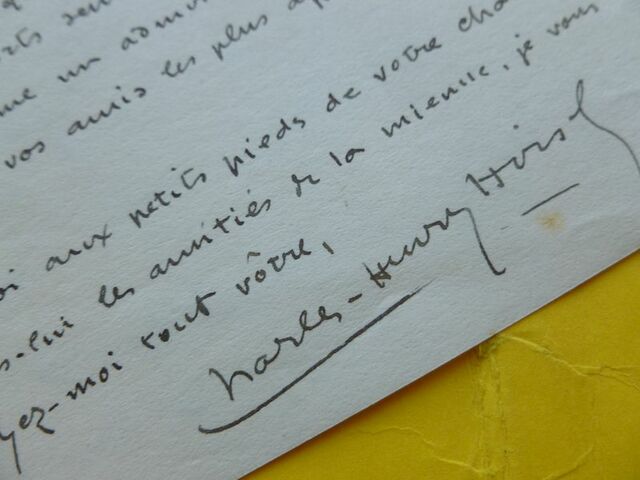 me un admi
vos amis les plus
aux petits pieds de votre cha
-lui les amitiés de la mienne, je vous
yez-moi tout vôtre,
Charles-Henry Hirsch